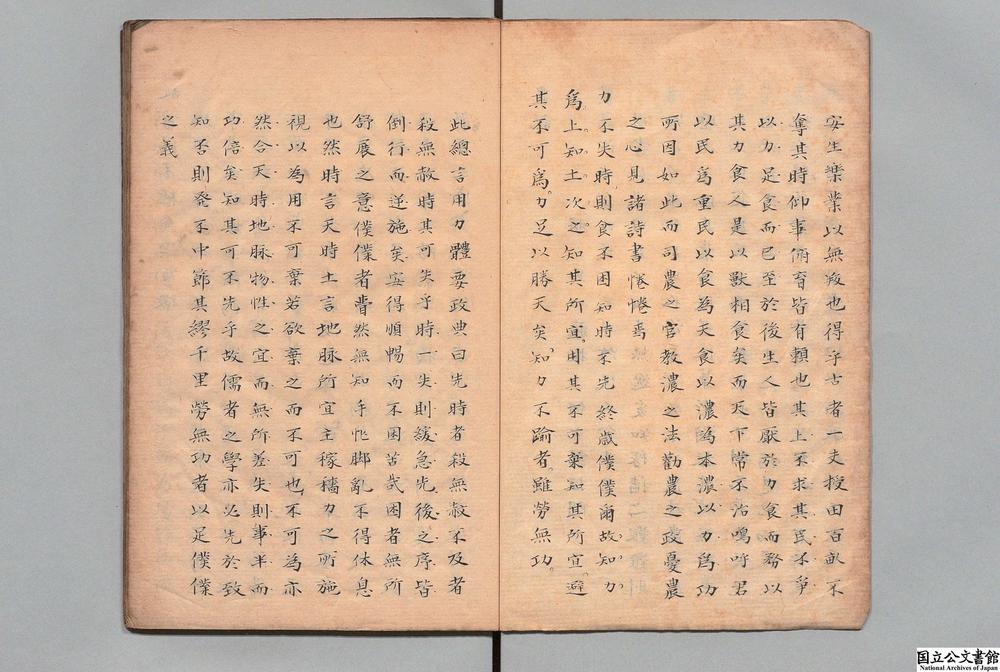 安生樂業以無飯也得乎古者一夫授田百畝不
奪其時仰事俯育皆有賴也其上不求其民不爭
以力足食而已至於後生人皆厭於力食而務以
其力食人是以獸相食矣而天下常不治嗚呼君
以民爲重民以食為天食以濃爲本濃以力爲功
所因如此而司農之官教濃之法勸農之政憂農
之心見諸詩書惓惓焉
力不失時則食不困知時不先終歲僕僕爾故知力
爲上知土次之知其所宜用其不可棄知其所宜避
其不可爲力足以勝天矣知力不踰者雖勞無功
此總言用力體要政典曰先時者殺無赦不及者
殺無赦時其可失乎時一失則緩急先後之序皆
倒行而逆施矣安得順暢而不困苦哉困者無所
舒展之意僕僕者瞢然無知手忙脚亂不得休息
也然時言天時土言地脉所宜主稼穡力之所施
視以為用不可棄若欲棄之而不可也不可為亦
然合天時地脉物性之宜而無所差失則事半而
功倍矣知其可不先乎故儒者之學亦必先於致
知否則発不中節其繆千里勞無功者以足僕僕
之義
国立公文書館
National Archives of Japan